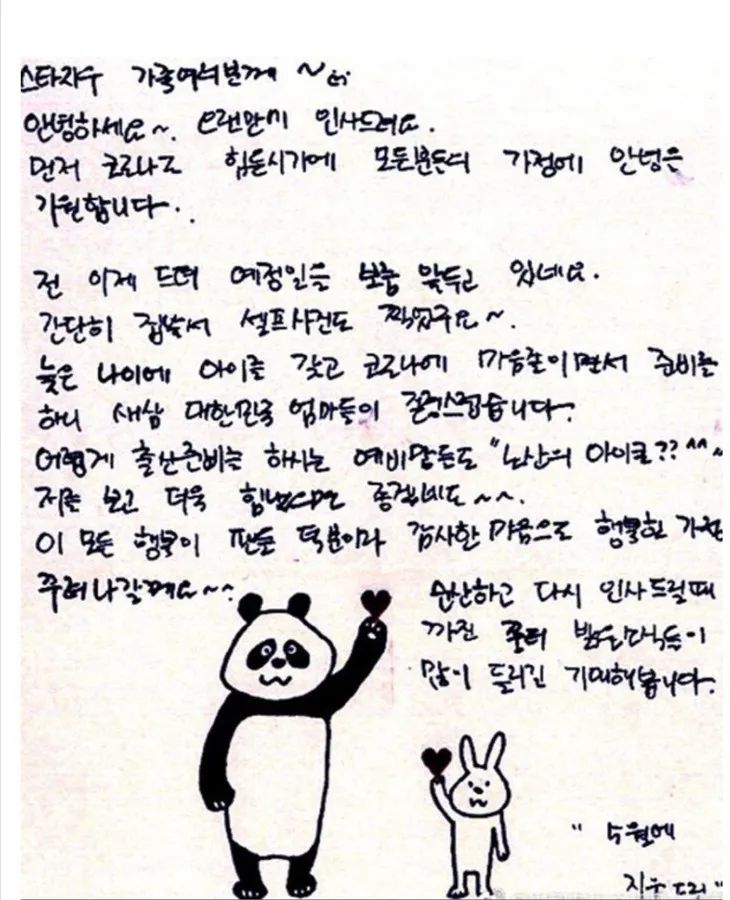 스타지우 가족여러분께 ~
안녕하세요~. 오랜만에 인사드려요.
먼저 코로나로 힘든시기에 모든분들의 가정에 안녕을
기원합니다..
전 이제 드뎌 예정일을 보름 앞두고 있네요.
간단히 집앞서 셀프사진도 찍었구요~.
늦은 나이에 아이를 갖고 코로나에 마음졸이면서 준비를
하니 새삼 대한민국 엄마들이 존경스럽습니다.
어렵게 출산준비를 하시는 예비맘들도 "노산의 아이콘?? ^^~
저를 보고 더욱 힘내
이 모든 행복이 팬들 덕분이라 감사한 마음으로 행복한 가정
꾸려나갈께요~~
순산하고 다시 인사드릴때
까진 좀더 밝은소식들이
많이 들리길 기대해봅니다.
" 5월에
지우 드림 "